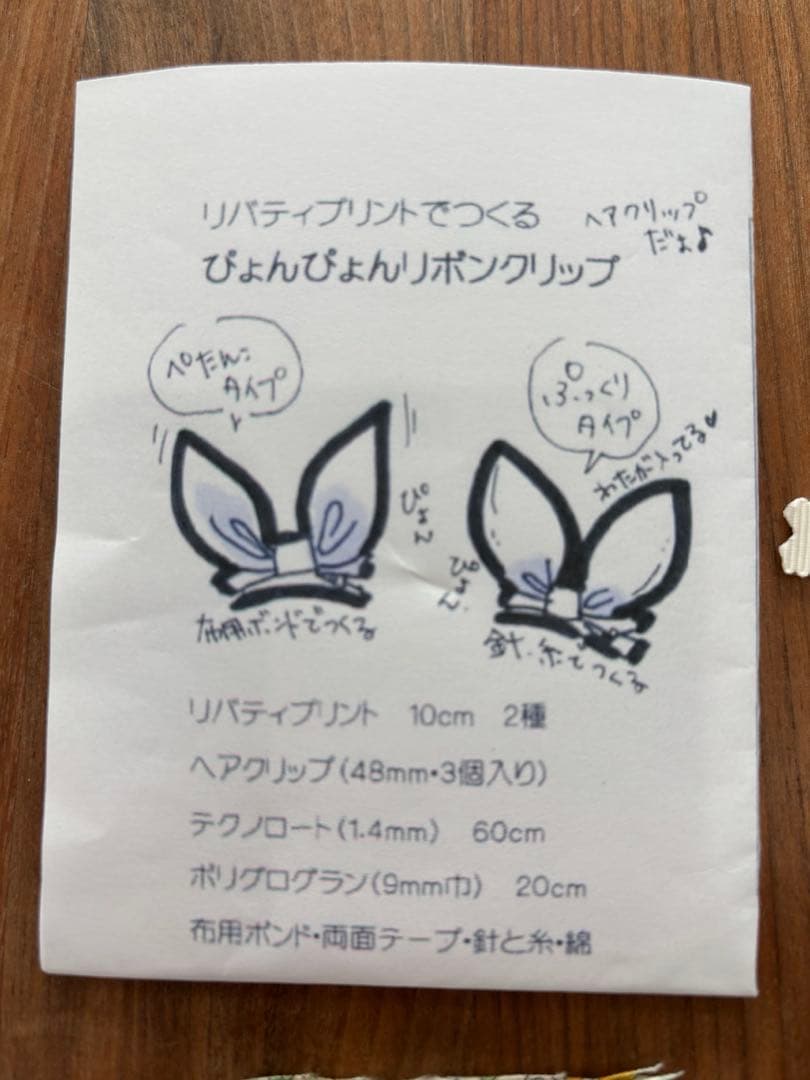 リバティプリントでつくる
ヘアクリップ
だよ♪
ぴょんぴょんリボンクリップ
ぺたんこ
タイプ
ぷっくり
タイプ
わたが入ってる♥
ぴょん
ぴょん
布用ボンドでつくる
針・糸でつくる
リバティプリント 10cm 2種
ヘアクリップ(48mm・3個入り)
テクノロート(1.4mm) 60cm
ポリグログラン(9mm巾) 20cm
布用ボンド・両面テープ・針と糸・綿